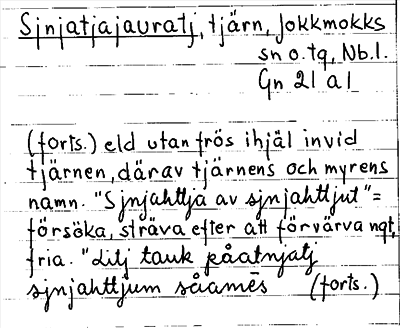 Sjnjatjajauratj, tjärn, Jokkmokks
sn o. tg, Nb. l.
Gn 21 a 1
(forts.) eld utan frös ihjäl invid
tjärnen, därav tjärnens och myrens
namn. "Sjnjahttja av sjnjahttjut" =
försöka, sträva efter att förvärva ngt,
fria. "Litj tauk påatnjatj
sjnjahttjum såamēs (forts.)